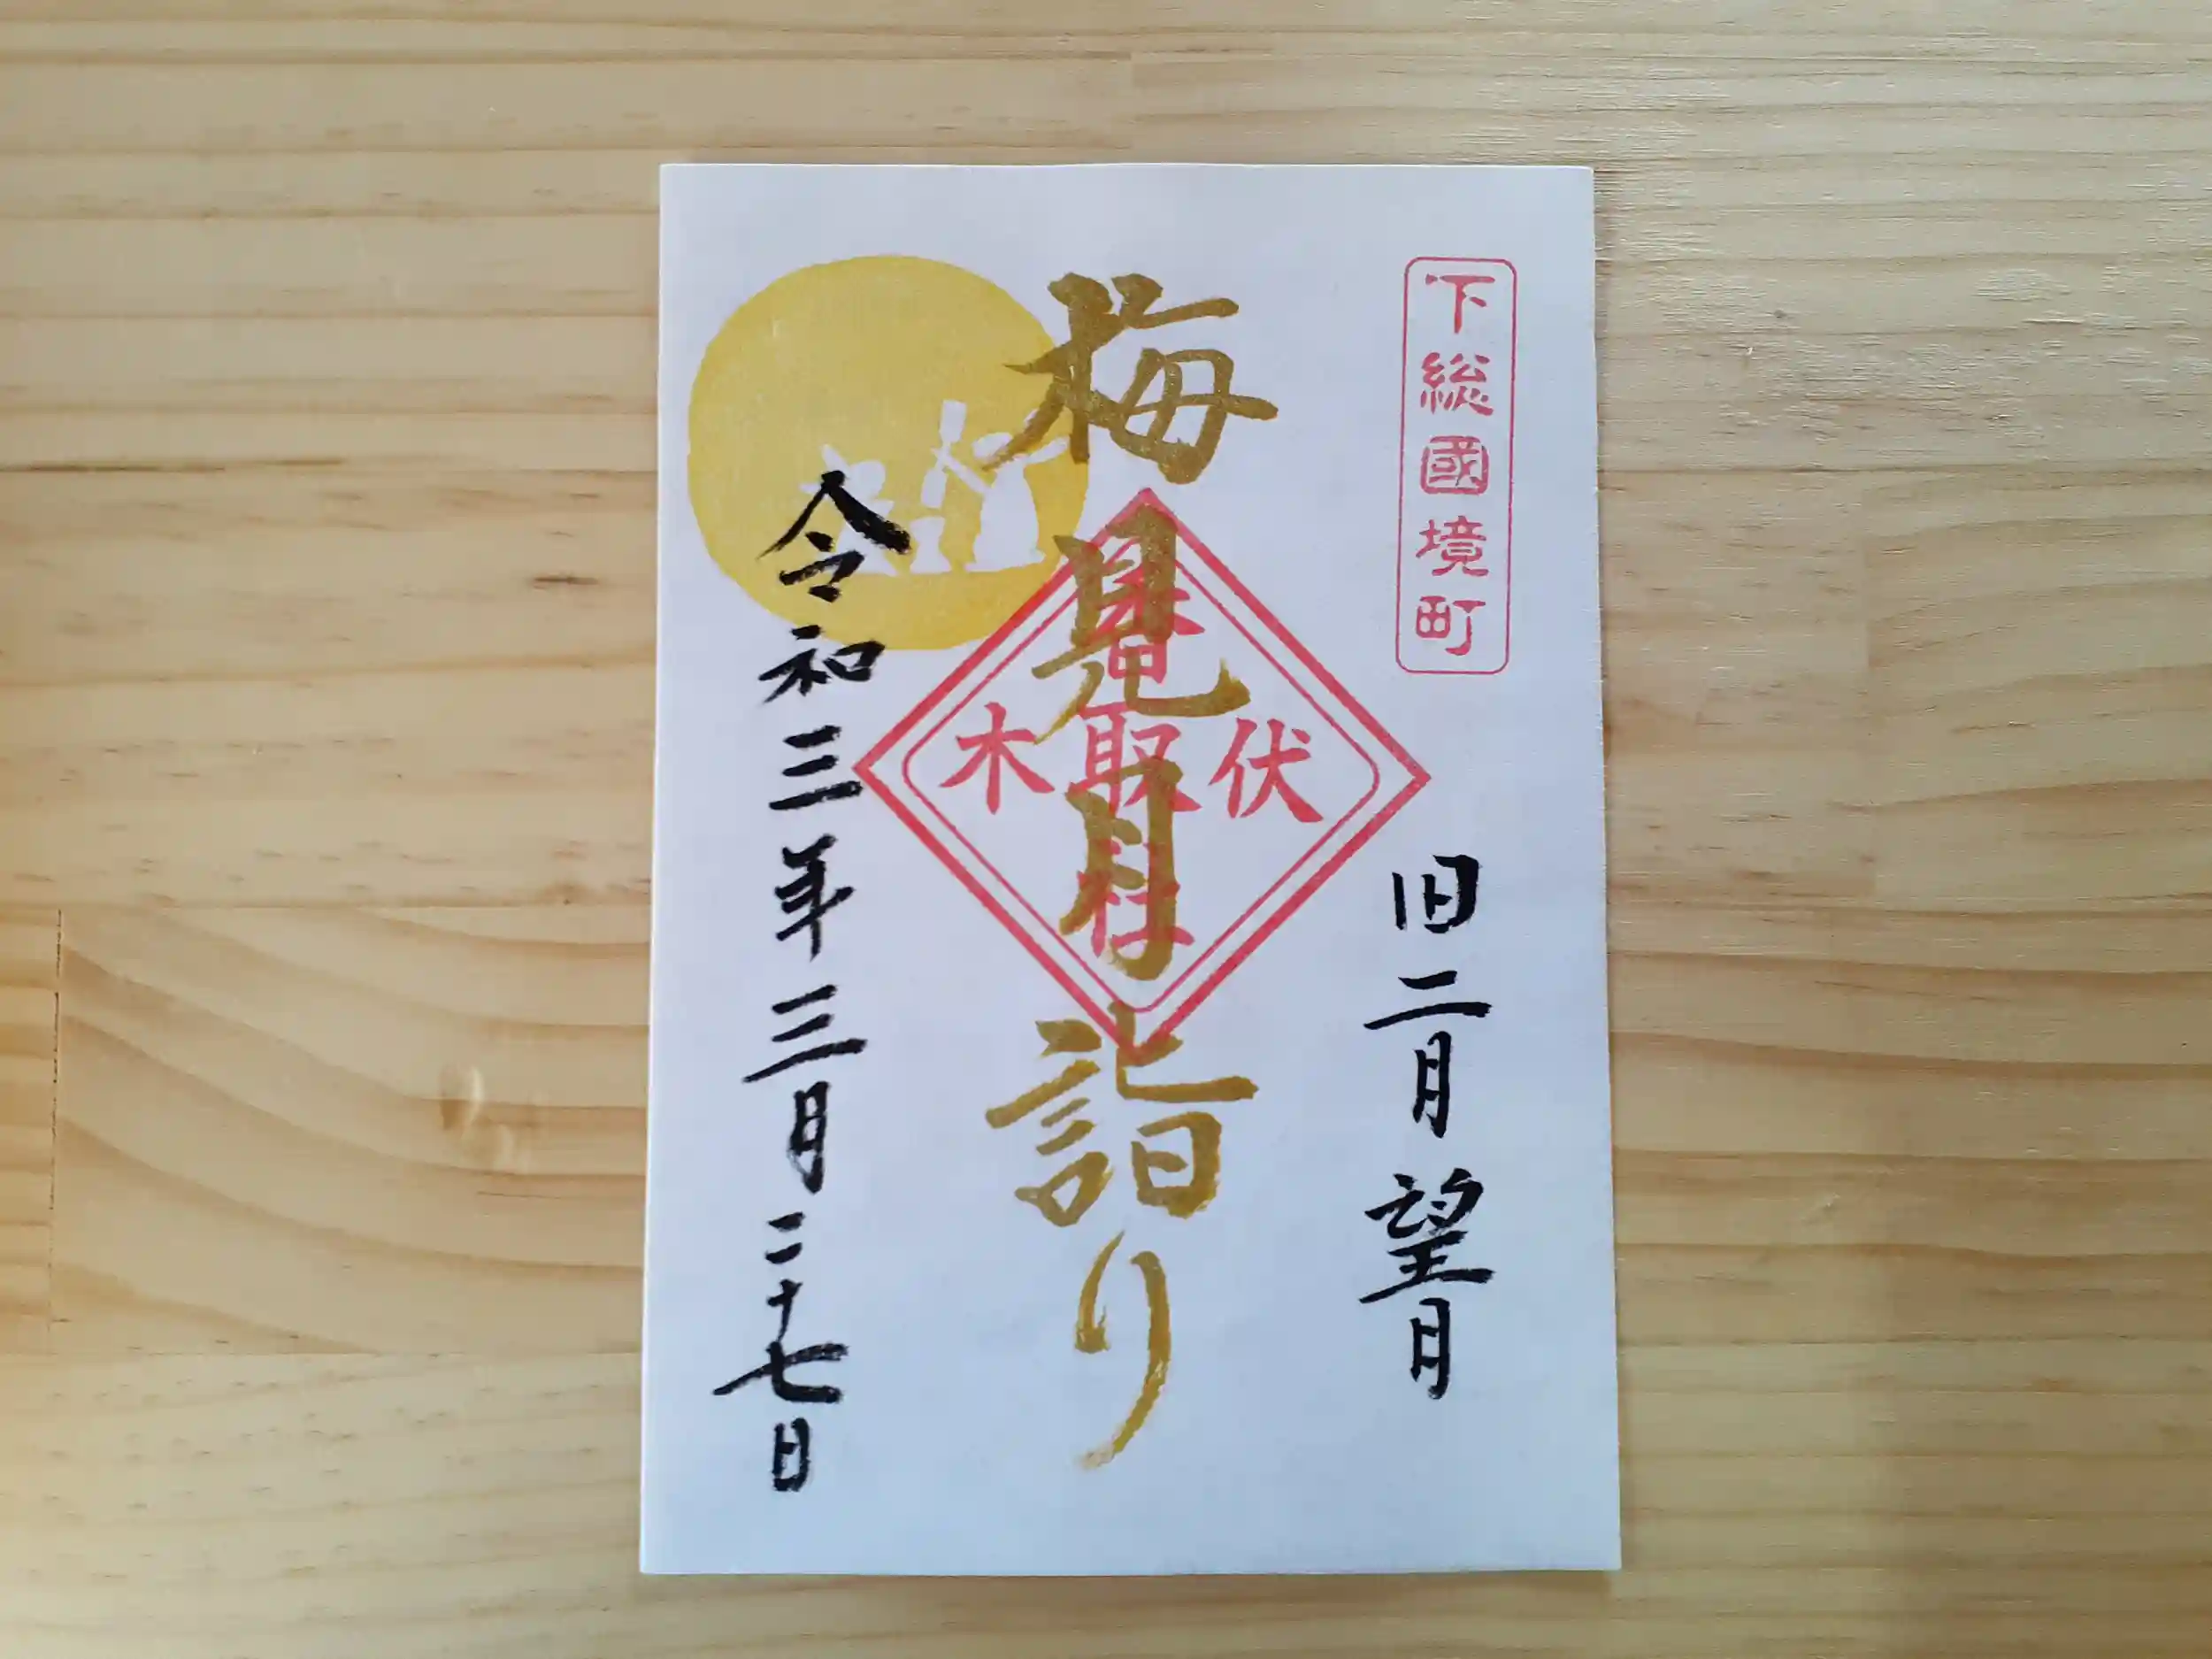 下総國境町
旧二月望月
梅見月詣り
伏木
香取社
令和三年三月二十七日